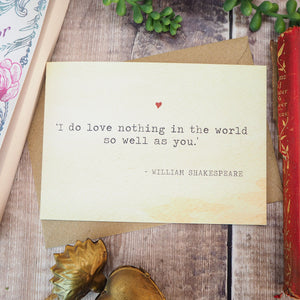 'I do love nothing in the world
so well as you.'
- WILLIAM SHAKESPEARE